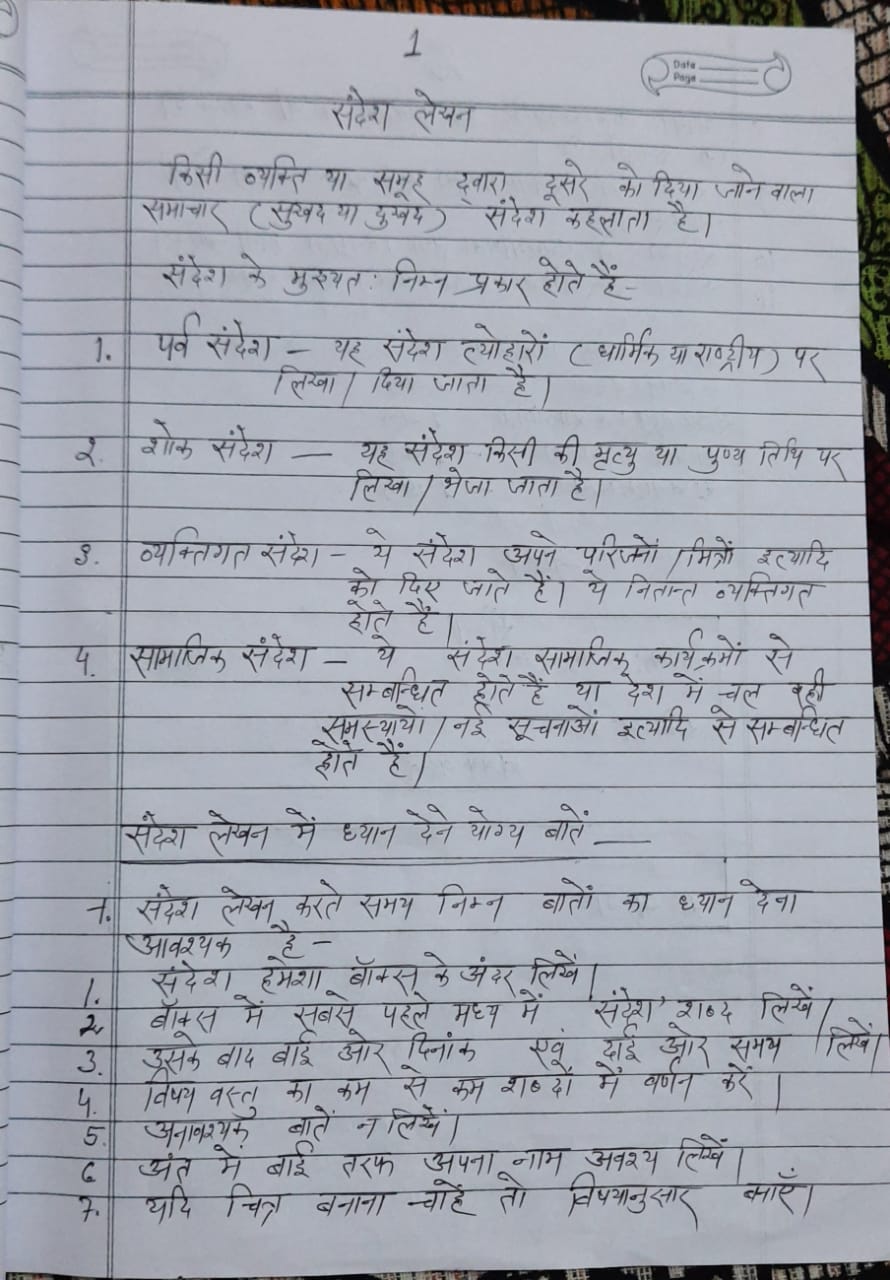 1
Date
Page
संदेश लेखन
किसी व्यक्ति या समूह द्वारा दूसरे को दिया जाने वाला
समाचार (सुखद या दुखद) संदेश कहलाता है।
संदेश के मुख्यत: निम्न प्रकार होते हैं-
1. पर्व संदेश - यह संदेश त्योहारों (धार्मिक या राष्ट्रीय) पर
लिखा/ दिया जाता है।
2. शोक संदेश - यह संदेश किसी की मृत्यु या पुण्य तिथि पर
लिखा / भेजा जाता है।
3. व्यक्तिगत संदेश - ये संदेश अपने परिजनों /मित्रों इत्यादि
को दिए जाते हैं। ये नितान्त व्यक्तिगत
होते हैं।
4. सामाजिक संदेश - ये संदेश सामाजिक कार्यक्रमों से
सम्बन्धित होते हैं या देश में चल रही
समस्यायों / नई सूचनाओं इत्यादि से सम्बन्धित
होते हैं।
संदेश लेखन में ध्यान देने योग्य बातें —
1. संदेश लेखन करते समय निम्न बातों का ध्यान देना
आवश्यक है -
1. संदेश हमेशा बॉक्स के अंदर लिखें।
2. बॉक्स में सबसे पहले मध्य में 'संदेश' शब्द लिखें।
3. उसके बाद बाईं ओर दिनांक एवं दाईं ओर समय लिखें।
4. विषय वस्तु का कम से कम शब्दों में वर्णन करें।
5. अनावश्यक बातें न लिखें।
6 अंत में बाईं तरफ अपना नाम अवश्य लिखें।
7. यदि चित्र बनाना चाहें तो विषयानुसार बनाएँ।